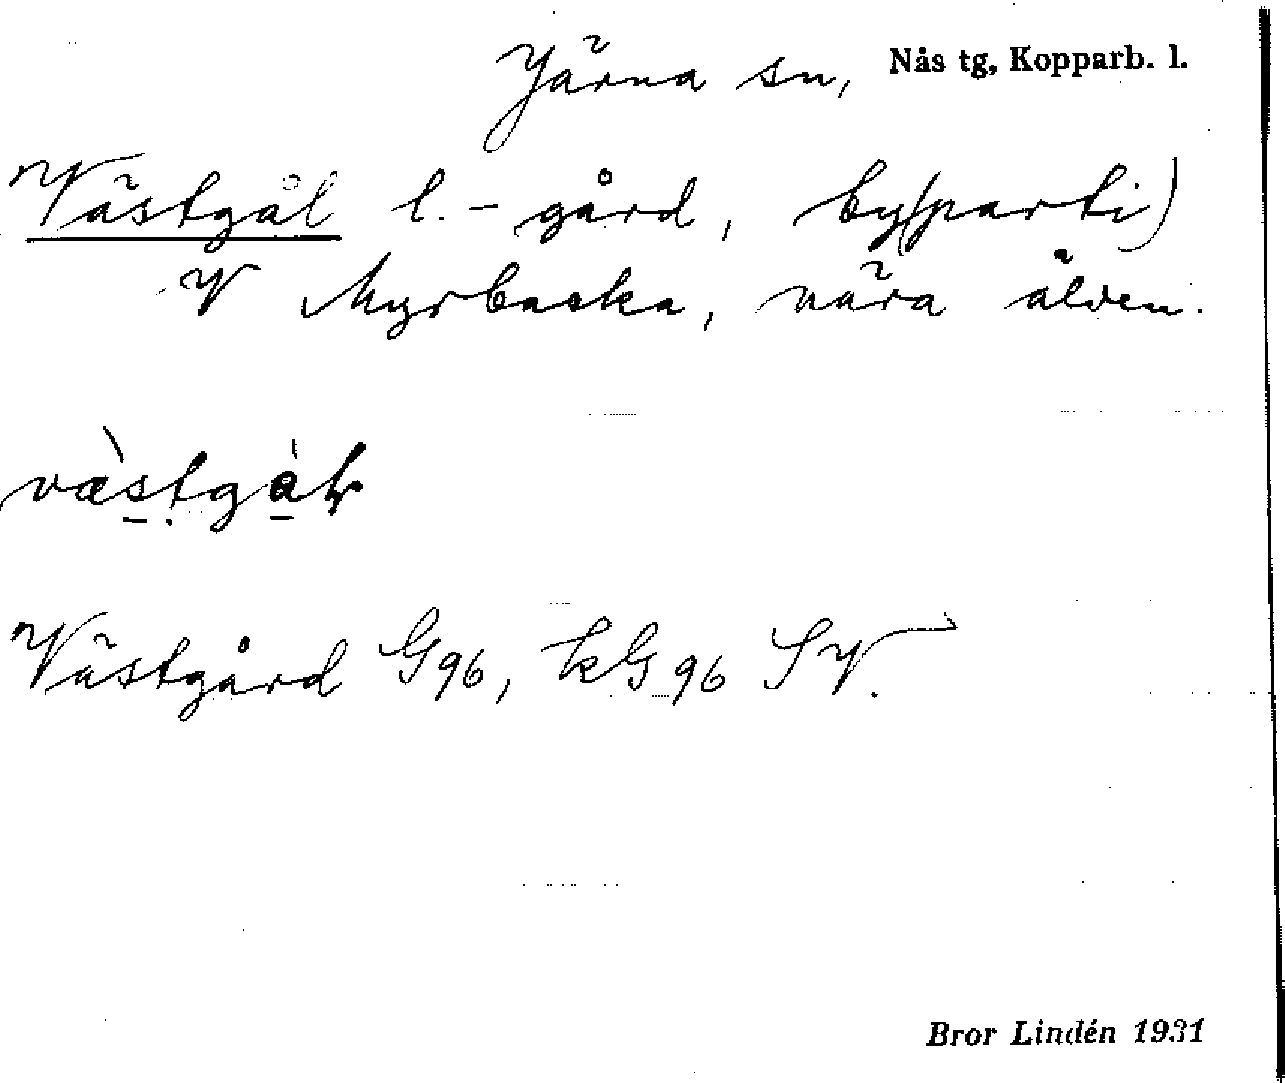 Järna sn, Nås tg, Kopparb. l.
Västgål l. -gård, by(parti)
V Myrbacka, nära älven.
Västgård G96, kG96 SV.
Bror Lindén 1931